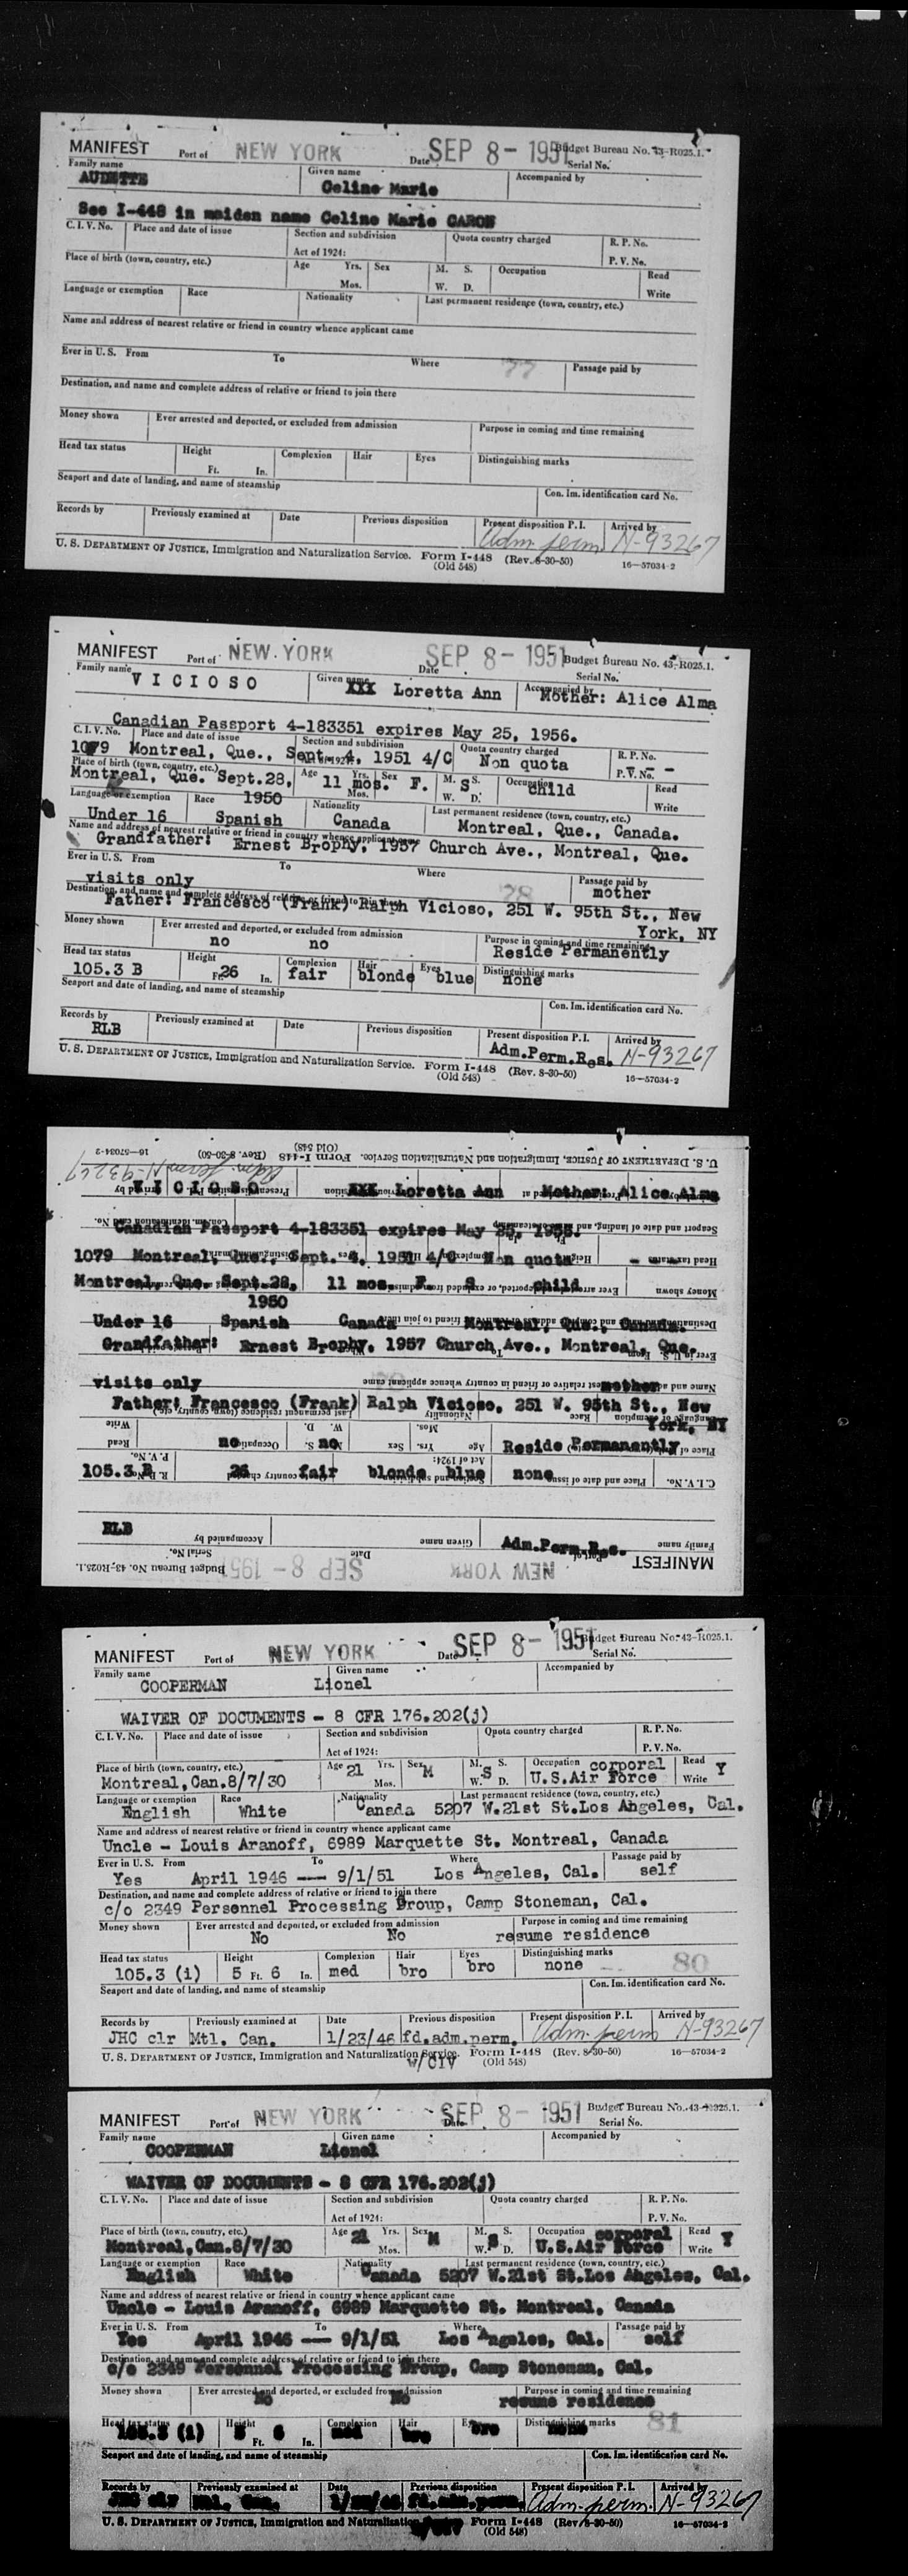 MANIFEST Port of NEW YORK Date SEP 8 - 1951 Budget Bureau No. 43-R025.1.
Serial No.
Family name Given name Accompanied by
AUDETTE Celine Marie
See I-448 in maiden name Celine Marie CARON
C. I. V. No. Place and date of issue Section and subdivision Quota country charged R. P. No.
Act of 1924: P. V. No.
Place of birth (town, country, etc.) Age Yrs. Sex M. S. Occupation Read
Mos. W. D. Write
Language or exemption Race Nationality Last permanent residence (town, country, etc.)
Name and address of nearest relative or friend in country whence applicant came
Ever in U. S. From To Where 77 Passage paid by
Destination, and name and complete address of relative or friend to join there
Money shown Ever arrested and deported, or excluded from admission Purpose in coming and time remaining
Head tax status Height Complexion Hair Eyes Distinguishing marks
Ft. In.
Seaport and date of landing, and name of steamship Con. Im. identification card No.
Records by Previously examined at Date Previous disposition Present disposition P. I. Arrived by
Adm. perm N-93267
U. S. DEPARTMENT OF JUSTICE, Immigration and Naturalization Service. Form I-448 (Rev. 8-30-50) 16—57034-2
(Old 548)
MANIFEST Port of NEW YORK Date SEP 8 - 1951 Budget Bureau No. 43-R025.1.
Serial No.
Family name Given name Accompanied by
VICIOSO XXX Loretta Ann Mother: Alice Alma
Canadian Passport 4-183351 expires May 25, 1956.
C. I. V. No. Place and date of issue Section and subdivision Quota country charged R. P. No.
1079 Montreal, Que., Sept. 4, 1951 4/C Non quota P. V. No. - -
Place of birth (town, country, etc.) Age Yrs. Sex M. S. Occupation Read
Montreal, Que. Sept.28, 11 mos. F. S child
1950 Mos. W. D. Write
Language or exemption Race Nationality Last permanent residence (town, country, etc.)
Under 16 Spanish Canada Montreal, Que., Canada.
Name and address of nearest relative or friend in country whence applicant came
Grandfather: Ernest Brophy, 1957 Church Ave., Montreal, Que.
Ever in U. S. From To Where Passage paid by
visits only 78 mother
Destination, and name and complete address of relative or friend to join there
Father: Francesco (Frank) Ralph Vicioso, 251 W. 95th St., New
York, NY
Money shown Ever arrested and deported, or excluded from admission Purpose in coming and time remaining
no no Reside Permanently
Head tax status Height Complexion Hair Eyes Distinguishing marks
105.3 B Ft. 26 In. fair blonde blue none
Seaport and date of landing, and name of steamship Con. Im. identification card No.
Records by Previously examined at Date Previous disposition Present disposition P. I. Arrived by
RLB Adm.Perm.Res. N-93267
U. S. DEPARTMENT OF JUSTICE, Immigration and Naturalization Service. Form I-448 (Rev. 8-30-50) 16—57034-2
(Old 548)
(Old 548)
U. S. DEPARTMENT OF JUSTICE, Immigration and Naturalization Service. Form I-448 (Rev. 8-30-50) 16—57034-2
Adm. perm N-93267
VICIOSO XXX Loretta Ann Mother: Alice Alma
Seaport and date of landing, and name of steamship Con. Im. identification card No.
Canadian Passport 4-183351 expires May 25, 1956.
1079 Montreal, Que., Sept. 4, 1951 4/C Non quota -
Montreal, Que. Sept.28, 11 mos. F. S child
1950
Under 16 Spanish Canada Montreal, Que., Canada.
Grandfather: Ernest Brophy, 1957 Church Ave., Montreal, Que.
visits only mother
Name and address of nearest relative or friend in country whence applicant came
Father: Francesco (Frank) Ralph Vicioso, 251 W. 95th St., New
York, NY
no no Reside Permanently
105.3 B 26 fair blonde blue none
C. I. V. No. Place and date of issue
RLB Adm.Perm.Res.
Family name Given name Accompanied by
MANIFEST Port of NEW YORK Date SEP 8 - 1951 Serial No.
Budget Bureau No. 43-R025.1.
MANIFEST Port of NEW YORK Date SEP 8 - 1951 Budget Bureau No. 43-R025.1.
Serial No.
Family name Given name Accompanied by
COOPERMAN Lionel
WAIVER OF DOCUMENTS - 8 CFR 176.202(j)
C. I. V. No. Place and date of issue Section and subdivision Quota country charged R. P. No.
Act of 1924: P. V. No.
Place of birth (town, country, etc.) Age 21 Yrs. Sex M M. S. Occupation corporal Read Y
Montreal, Can.8/7/30 Mos. W. S D. U.S.Air Force Write
Language or exemption Race Nationality Last permanent residence (town, country, etc.)
English White Canada 5207 W.21st St.Los Angeles, Cal.
Name and address of nearest relative or friend in country whence applicant came
Uncle - Louis Aranoff, 6989 Marquette St. Montreal, Canada
Ever in U. S. From To Where Passage paid by
Yes April 1946 --- 9/1/51 Los Angeles, Cal. self
Destination, and name and complete address of relative or friend to join there
c/o 2349 Personnel Processing Group, Camp Stoneman, Cal.
Money shown Ever arrested and deported, or excluded from admission Purpose in coming and time remaining
No No resume residence
Head tax status Height Complexion Hair Eyes Distinguishing marks
105.3 (i) 5 Ft. 6 In. med bro bro none 80
Seaport and date of landing, and name of steamship Con. Im. identification card No.
Records by Previously examined at Date Previous disposition Present disposition P. I. Arrived by
JHC clr Mtl. Can. 1/23/46 fd.adm.perm. Adm. perm N-93267
U. S. DEPARTMENT OF JUSTICE, Immigration and Naturalization Service. Form I-448 (Rev. 8-30-50) 16—57034-2
w/CIV (Old 548)
MANIFEST Port of NEW YORK Date SEP 8 - 1951 Budget Bureau No. 43-R025.1.
Serial No.
Family name Given name Accompanied by
COOPERMAN Lionel
WAIVER OF DOCUMENTS - 8 CFR 176.202(j)
C. I. V. No. Place and date of issue Section and subdivision Quota country charged R. P. No.
Act of 1924: P. V. No.
Place of birth (town, country, etc.) Age 21 Yrs. Sex M M. S. Occupation corporal Read Y
Montreal, Can.8/7/30 Mos. W. S D. U.S.Air Force Write
Language or exemption Race Nationality Last permanent residence (town, country, etc.)
English White Canada 5207 W.21st St.Los Angeles, Cal.
Name and address of nearest relative or friend in country whence applicant came
Uncle - Louis Aranoff, 6989 Marquette St. Montreal, Canada
Ever in U. S. From To Where Passage paid by
Yes April 1946 --- 9/1/51 Los Angeles, Cal. self
Destination, and name and complete address of relative or friend to join there
c/o 2349 Personnel Processing Group, Camp Stoneman, Cal.
Money shown Ever arrested and deported, or excluded from admission Purpose in coming and time remaining
No No resume residence
Head tax status Height Complexion Hair Eyes Distinguishing marks 81
105.3 (i) 5 Ft. 6 In. med bro bro none
Seaport and date of landing, and name of steamship Con. Im. identification card No.
Records by Previously examined at Date Previous disposition Present disposition P. I. Arrived by
JHC clr Mtl. Can. 1/23/46 fd.adm.perm. Adm. perm. N-93267
U. S. DEPARTMENT OF JUSTICE, Immigration and Naturalization Form I-448 (Rev. 8-30-50) 16—57034-2
(Old 548)